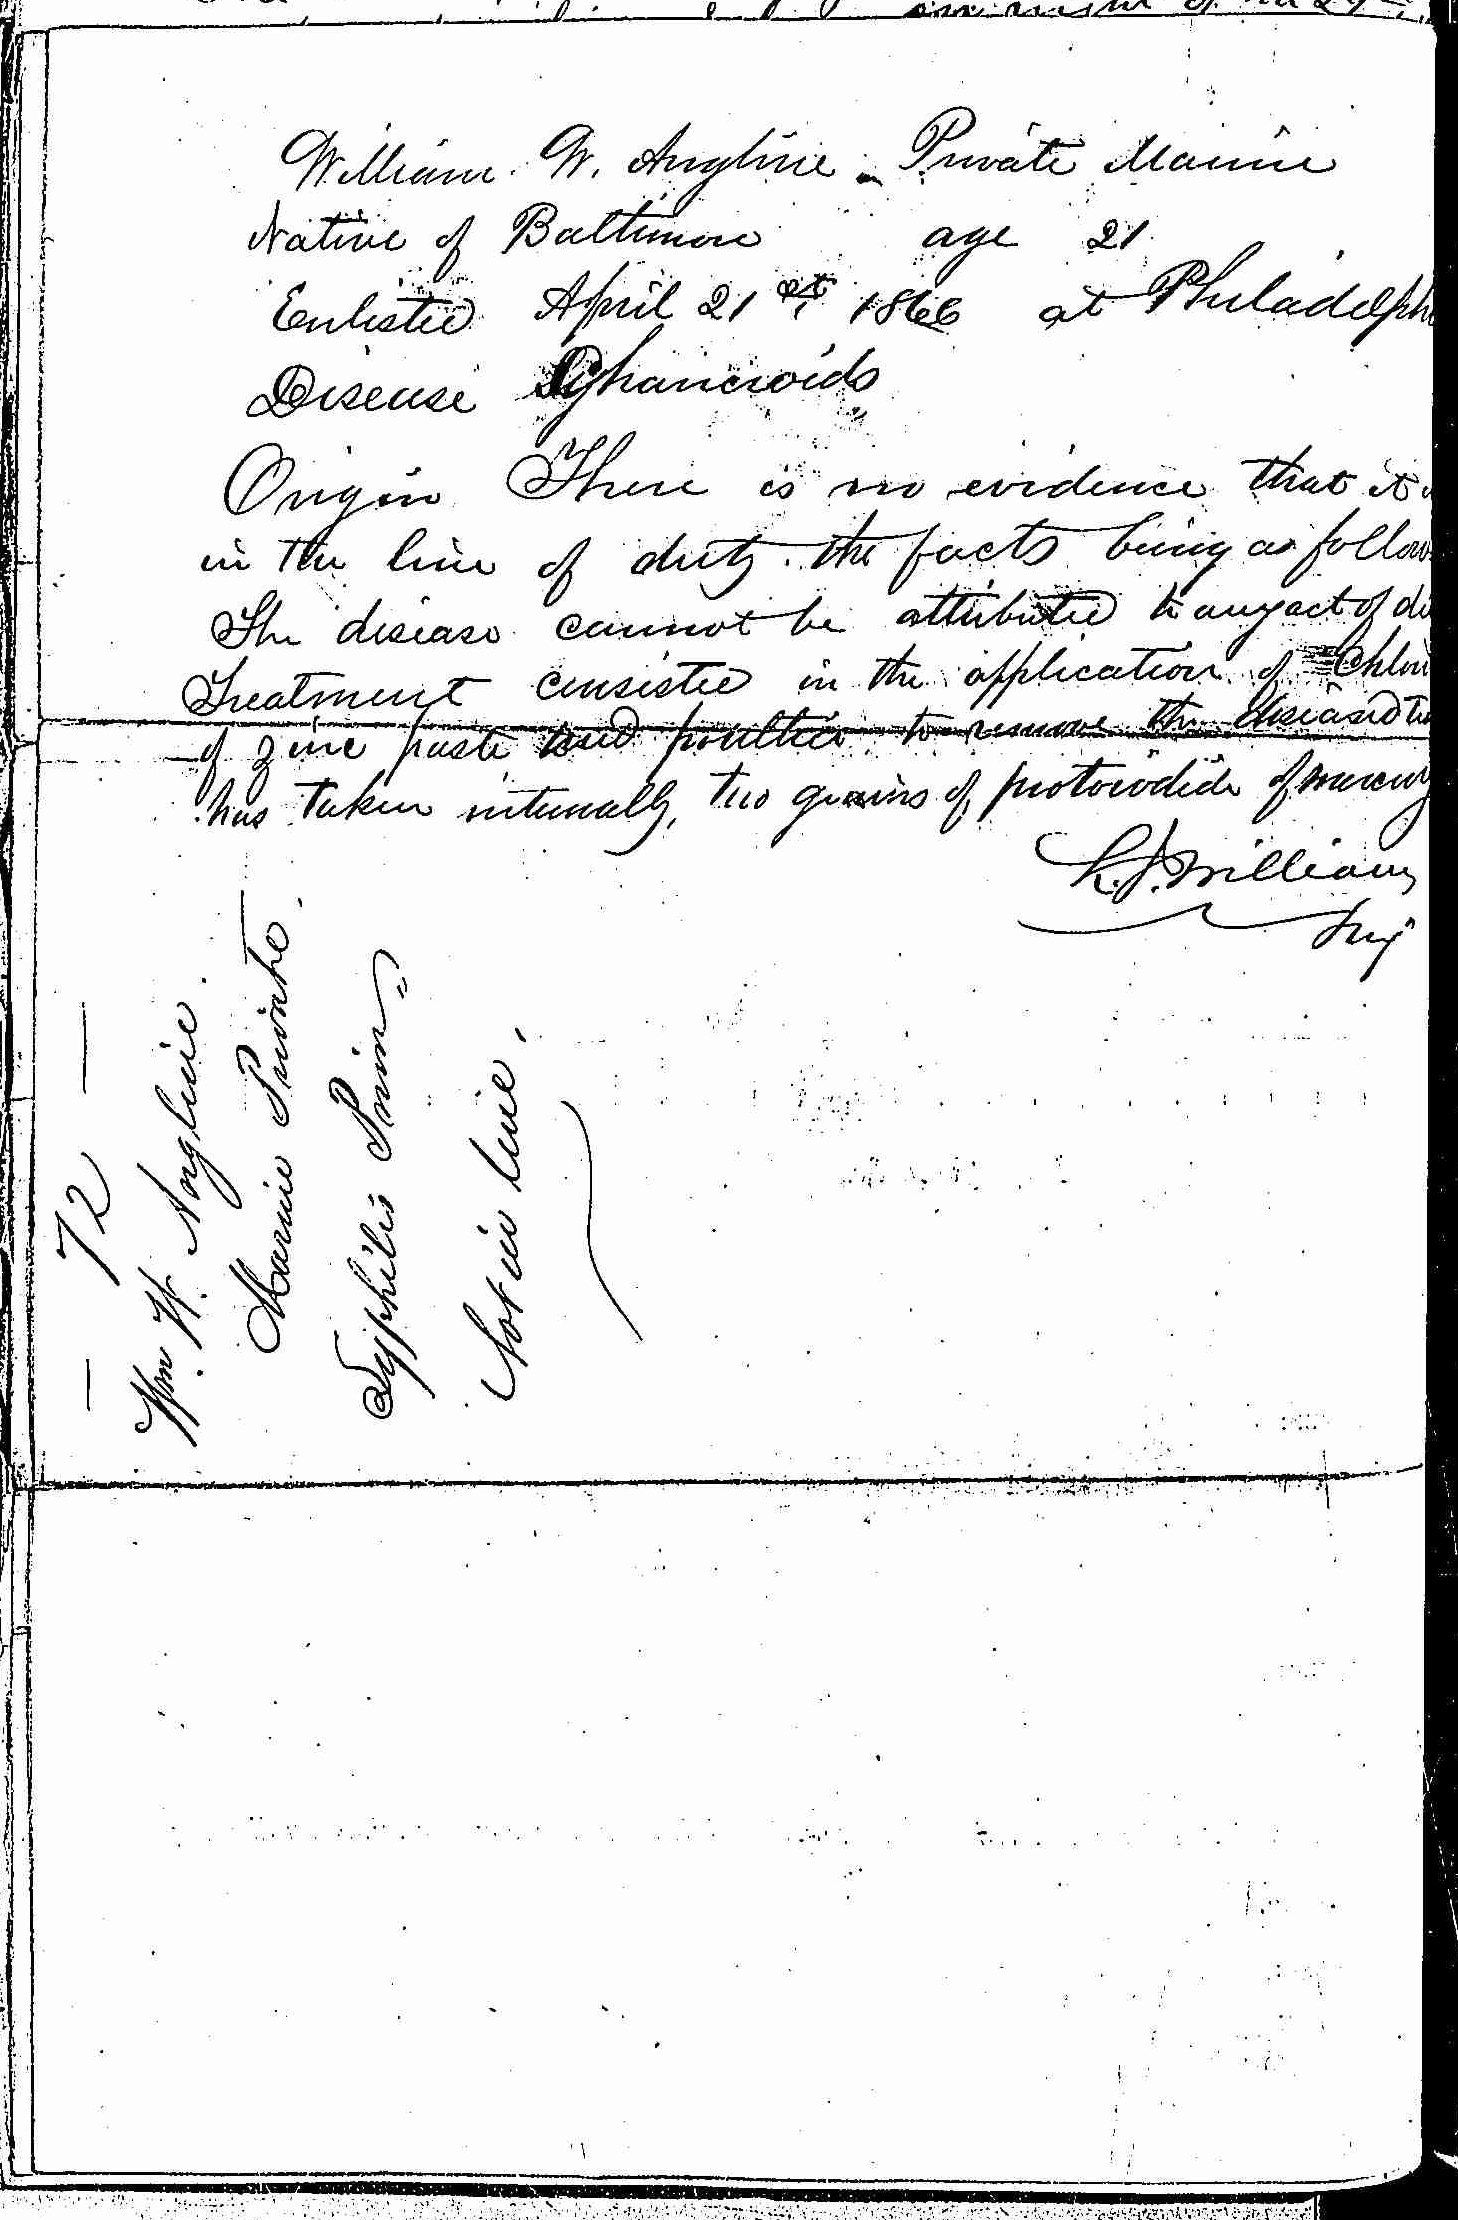 William W. Angline Private Marine
Native of Baltimore age 21
Enlisted April 21st 1866 at Philadelph
Disease
Origin There is no evidence that it
in the line of duty. the facts being as follow
The disease cannot be attributed to any act of du
Treatment consisted in the application of Chlori
of zinc paste and poultice to remove the diseased
has taken internally, two grains of protoiodide of mercury
Williams
Surg
— 72 —
Wm W. Angline.
Marine Private.
Syphilis Prim.
Not in line.